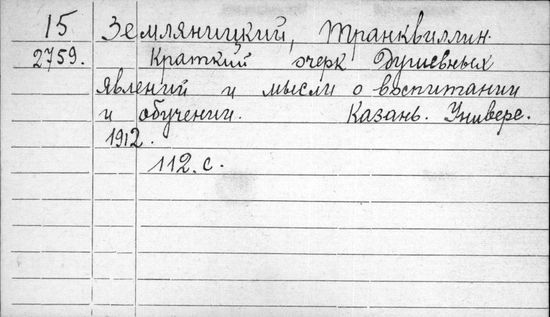 15 Земляницкий, Транквиллин.
2759. Краткий очерк Душевных
явлений и мысли о воспитании
и обучении. Казань. Универс.
1912.
112. с.